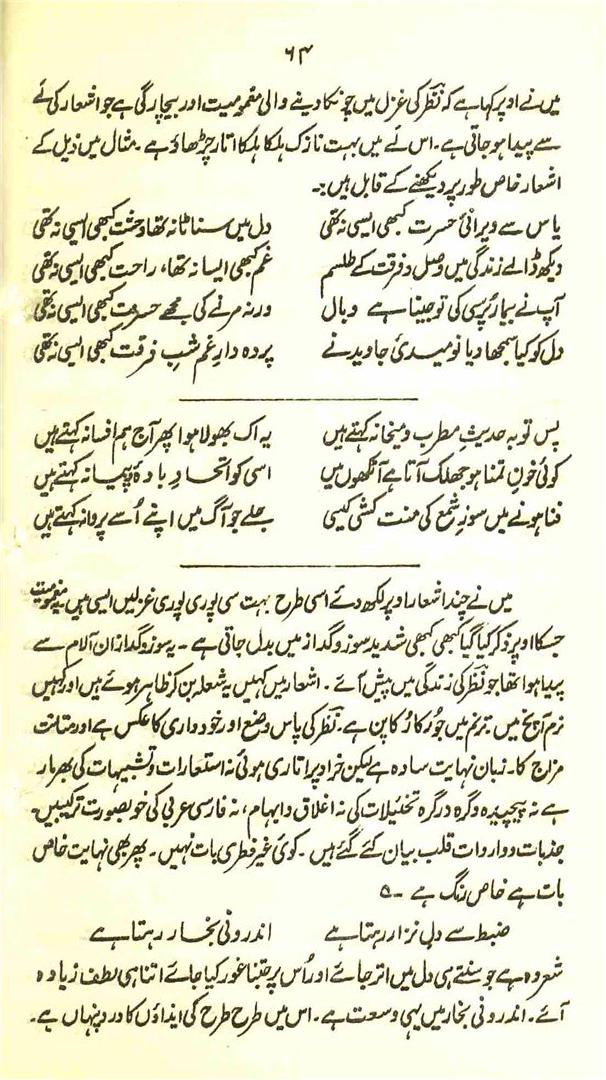 ۶۴
میں نے اوپر کہا ہے کہ نظرؔ کی غزل میں چونکا دینے والی مغمومیت اور بیچارگی ہے جو اشعار کی لَے
سے پیدا ہو جاتی ہے۔ اس لَے میں بہت نازک ہلکا ہلکا اتار چڑھاؤ ہے۔ مثال میں ذیل کے
اشعار خاص طور پر دیکھنے کے قابل ہیں:۔
یاس سے ویرانئ حسرت کبھی ایسی نہ تھی دل میں سناٹا نہ تھا وحشت کبھی ایسی نہ تھی
دیکھ ڈالے زندگی میں وصل و فرقت کے طلسم غم کبھی ایسا نہ تھا، راحت کبھی ایسی نہ تھی
آپ نے بیمار پُرسی کی تو جینا ہے وبال ورنہ مرنے کی مجھے حسرت کبھی ایسی نہ تھی
دل کو کیا سمجھا دیا نومیدئ جاوید نے پردہ دارِ غم شبِ فرقت کبھی ایسی نہ تھی
پس توبہ حدیثِ مطرب و میخانہ کہتے ہیں یہ اک بھولا ہوا پھر آج ہم افسانہ کہتے ہیں
کوئی خونِ تمنا ہو جھلک آتا ہے آنکھوں میں اسی کو اتحادِ بادۂ و پیمانہ کہتے ہیں
فنا ہونے میں سوزِ شمع کی منت کشی کیسی جلے جو آگ میں اپنے اُسے پروانہ کہتے ہیں
میں نے چند اشعار اوپر لکھ دئے اسی طرح بہت سی پوری پوری غزلیں ایسی ہیں یہ مغمومیت
جسکا اوپر ذکر کیا گیا کبھی کبھی شدید سوز و گداز میں بدل جاتی ہے۔ یہ سوز و گداز ان آلام سے
پیدا ہوا تھا جو نظرؔ کی زندگی میں پیش آئے۔ اشعار میں کہیں یہ شعلہ بن کر ظاہر ہوئے ہیں اور کہیں
نرم آنچ میں۔ ترنم میں جو رُکا رُکا پن ہے۔ نظرؔ کی پاس وضع اور خود داری کا عکس ہے اور متانت
مزاج کا۔ زبان نہایت سادہ ہے لیکن خراد پر اتاری ہوئی نہ استعارات و تشبیہات کی بھرمار
ہے نہ پیچیدہ و گرہ در گرہ تخئیلات کی نہ اغلاق و ایہام، نہ فارسی عربی کی خوبصورت ترکیبیں۔
جذبات و واردات قلب بیان کئے گئے ہیں۔ کوئی غیر فطری بات نہیں۔ پھر بھی نہایت خاص
بات ہے خاص رنگ ہے ۔ ؎
ضبط سے دل نزار رہتا ہے اندرونی بخار رہتا ہے
شعر وہ ہے جو سنتے ہی دل میں اتر جائے اور اُس پر جتنا غور کیا جائے اتنا ہی لطف زیادہ
آئے۔ اندرونی بخار میں یہی وسعت ہے۔ اس میں طرح طرح کی ایذاؤں کا درد پنہاں ہے۔